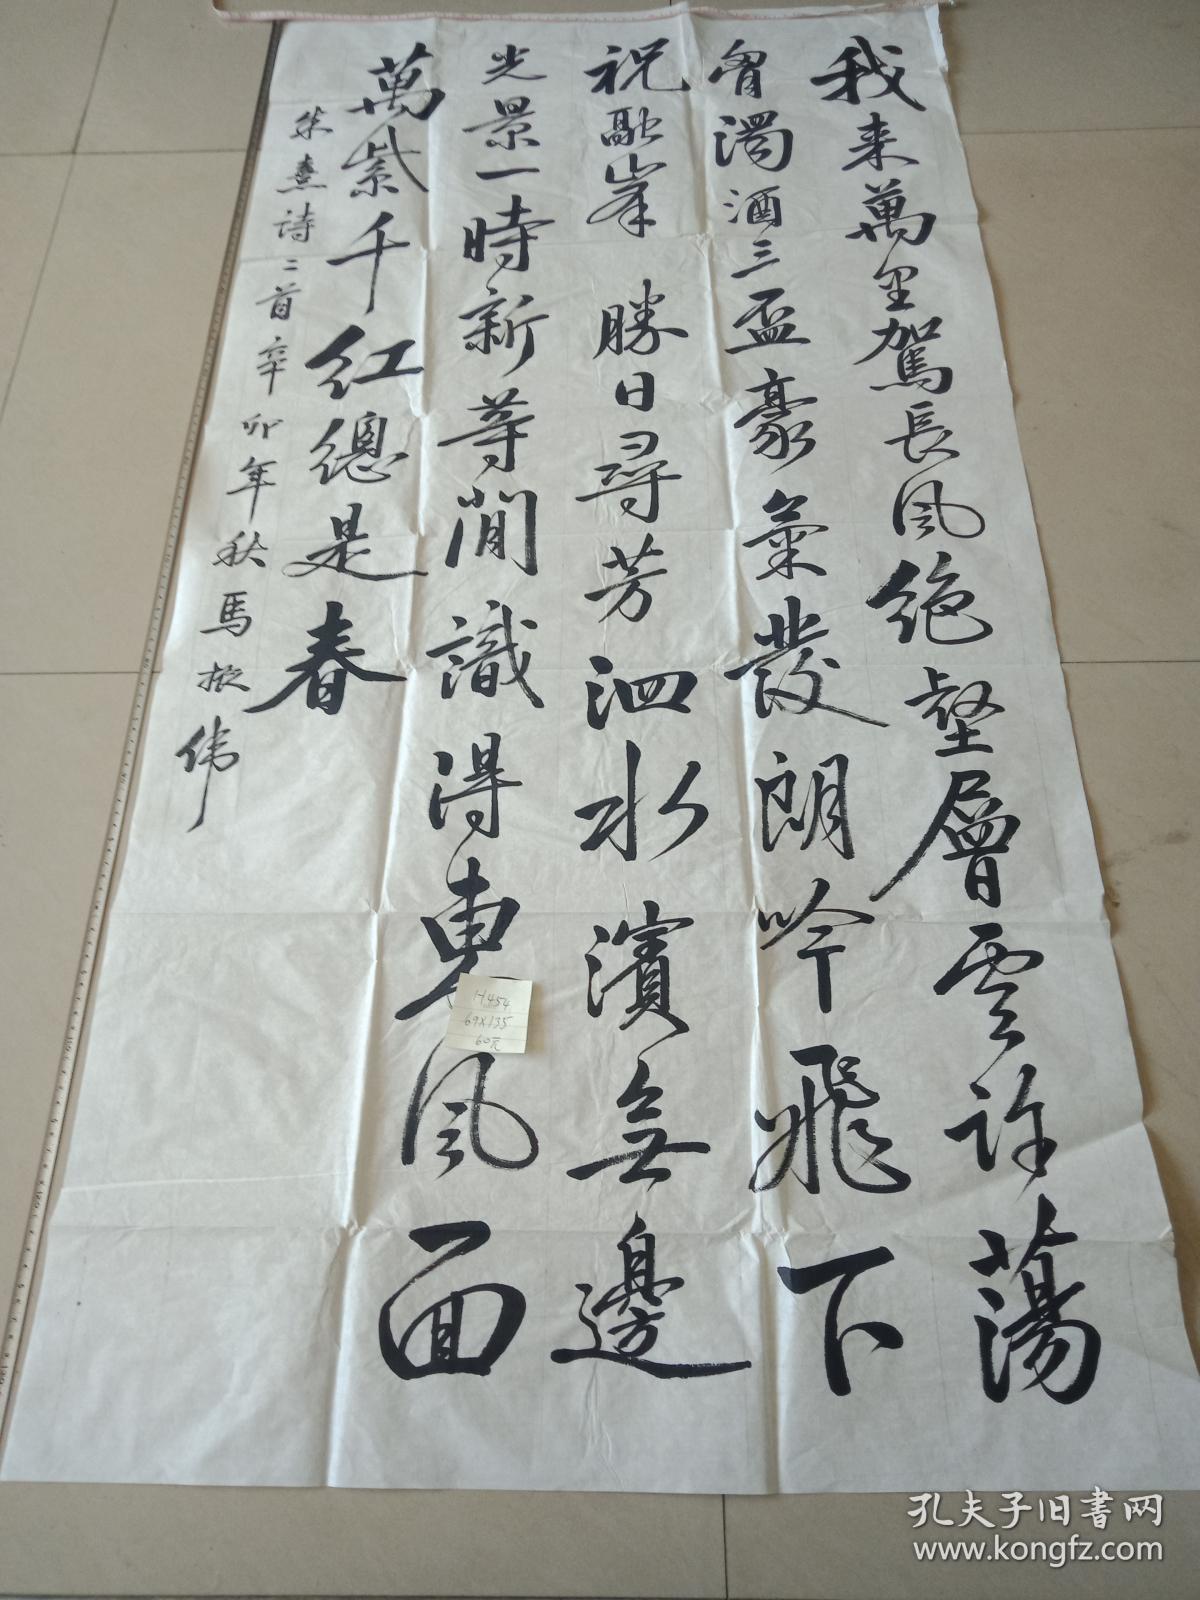 我来萬里駕長風絕壑層雲許蕩
胷濁酒三盃豪氣發朗吟飛下
祝融峯 勝日尋芳泗水濱無邊
光景一時新等閒識得東風面
萬紫千紅總是春
朱熹诗二首辛卯年秋馬振伟
H454
69X135
60元
孔夫子旧书网
www.kongfz.com